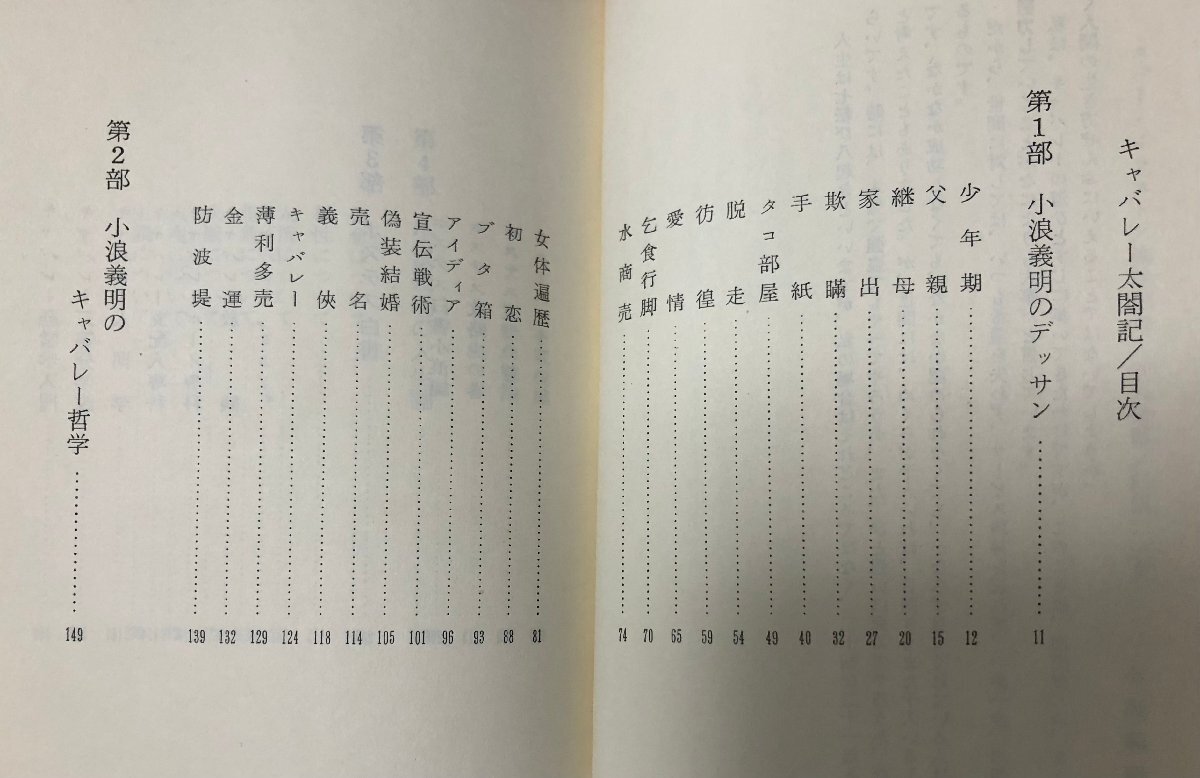 キャバレー太閤記／目次
第1部　小浪義明のデッサン…………11
少年期…………12
父親…………15
継母…………20
家出…………27
欺瞞…………32
手紙…………40
タコ部屋…………49
脱走…………54
彷徨…………59
愛情…………65
乞食行脚…………70
水商売…………74
女体遍歴…………81
初恋…………88
ブタ箱…………93
アイディア…………96
宣伝戦術…………101
偽装結婚…………105
売名…………114
義俠…………118
キャバレー…………124
薄利多売…………129
金運…………132
防波堤…………139
第2部　小浪義明の
キャバレー哲学…………149